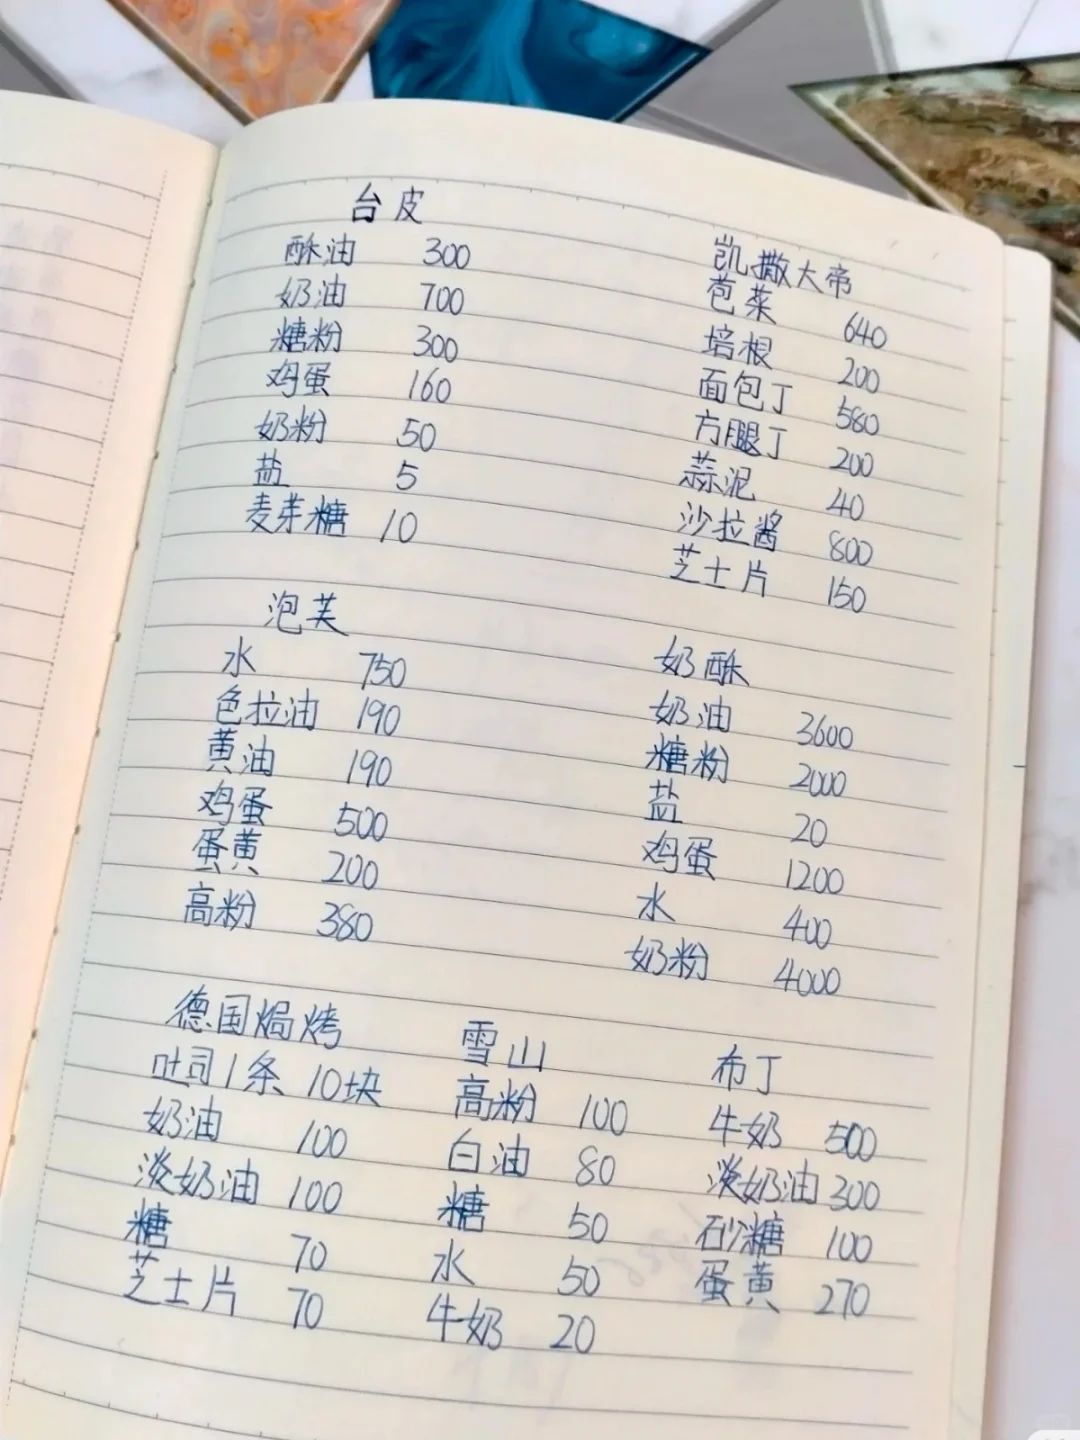 台皮
酥油 300
奶油 700
糖粉 300
鸡蛋 160
奶粉 50
盐 5
麦芽糖 10
凯撒大帝
苞菜 640
培根 200
面包丁 580
方腿丁 200
蒜泥 40
沙拉酱 800
芝士片 150
泡芙
水 750
色拉油 190
黄油 190
鸡蛋 500
蛋黄 200
高粉 380
奶酥
奶油 3600
糖粉 2000
盐 20
鸡蛋 1200
水 400
奶粉 4000
德国焗烤
吐司1条 10块
奶油 100
淡奶油 100
糖 70
芝士片 70
雪山
高粉 100
白油 80
糖 50
水 50
牛奶 20
布丁
牛奶 500
淡奶油 300
砂糖 100
蛋黄 270